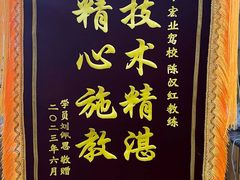 宏业驾校 陈汉红教练
技术精湛
精心施教
学员刘佩恩 敬赠
二〇二三年六月